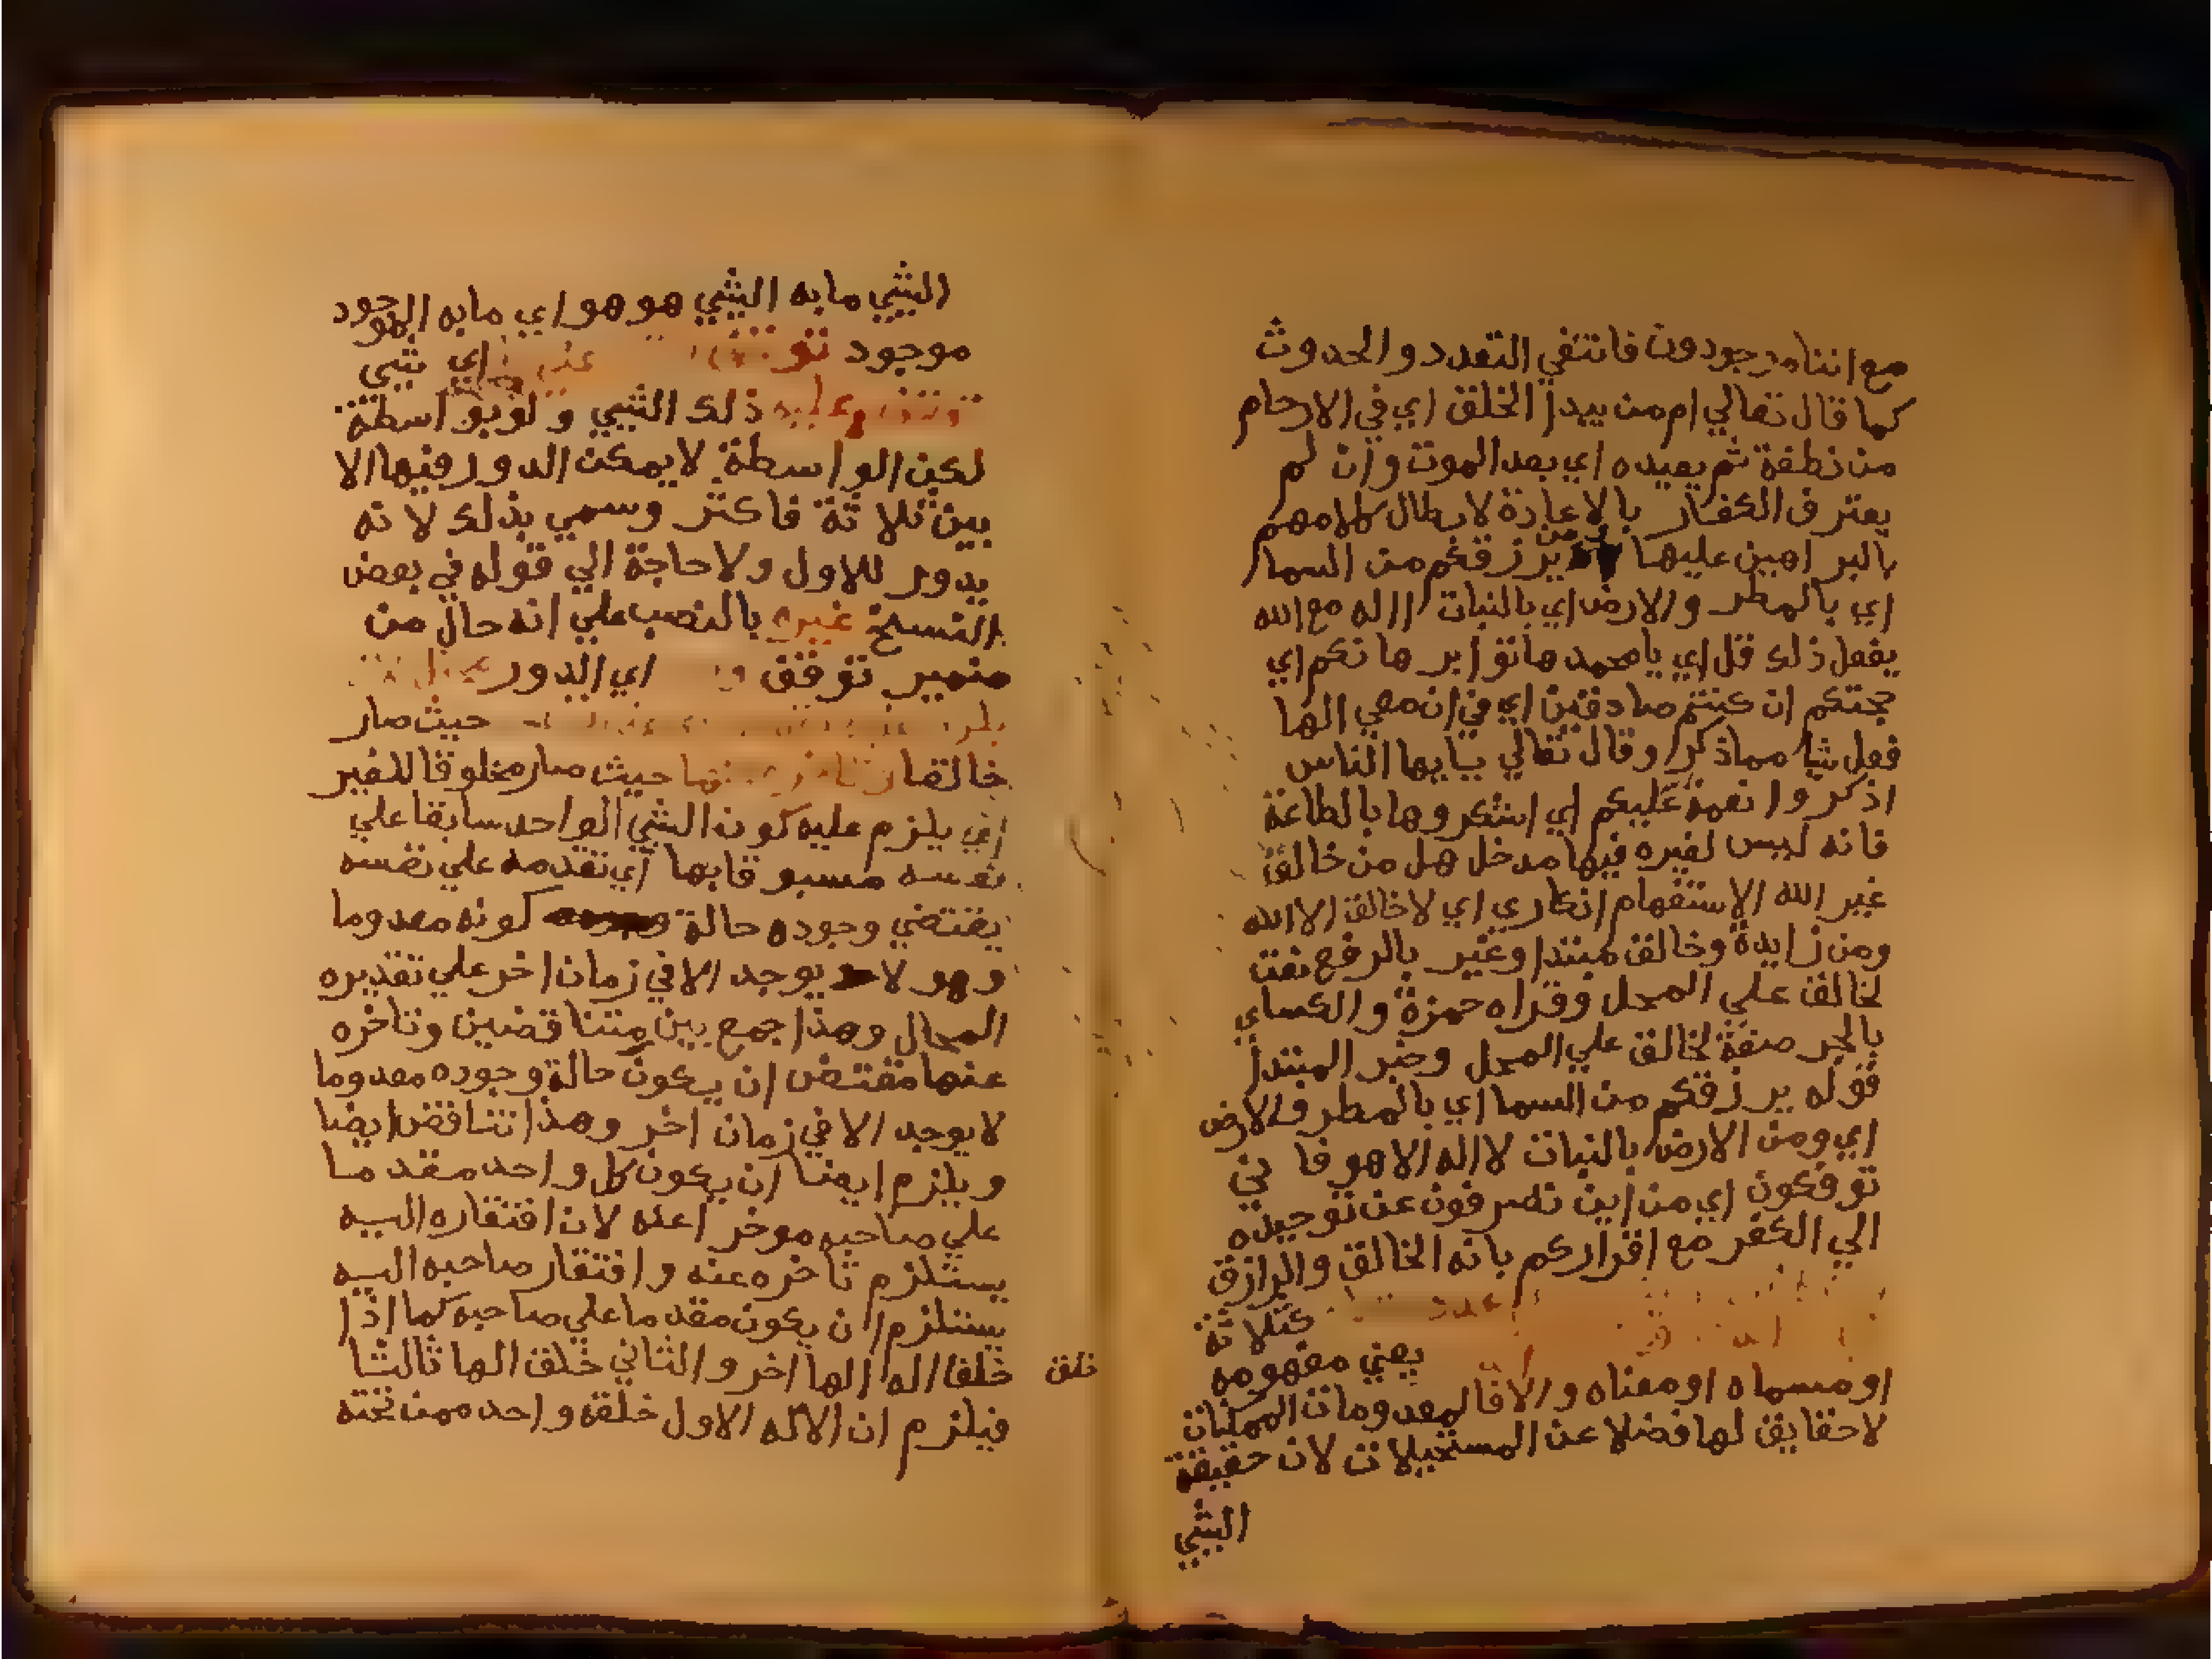 مع اننا موجودون فانتفي التعدد والحدوث
كما قال تعالي ام من يبدا الخلق اي في الارحام
من نطفة ثم يعيده اي بعد الموت وان لم
يعترف الكفار بالاعادة لابطال كلامهم
بالبراهين عليها ومن يرزقكم من السما
اي بالمطر والارض اي بالنبات االه مع الله
يفعل ذلك قل اي يا محمد هاتوا برهانكم اي
حجتكم ان كنتم صادقين اي في ان معي الها
فعل شيا مما ذكر وقال تعالي يايها الناس
اذكروا نعمة عليكم اي اشكروها بالطاعة
فانه ليس لغيره فيها مدخل هل من خالق
غير الله الاستفهام انكاري اي لا خالق الا الله
ومن زايدة وخالق مبتدا وغير بالرفع نعت
لخالق علي المحل وقراه حمزة والكساي
بالجر صفة لخالق علي المحل وخبر المبتدا
قوله يرزقكم من السما اي بالمطر والارض
اي ومن الارض بالنبات لا اله الا هو فاني
توفكون اي من اين تصرفون عن توحيده
الي الكفر مع اقراركم بانه الخالق والرازق
عدد كثلاثة
يعني مفهومه
او مسماه او معناه والا فالمعدومات الممكنات
لا حقايق لها فضلا عن المستحيلات لان حقيقة
الشي
الشي ما به الشي هو هو اي ما به الموجود
موجود اي شي
عليه ذلك الشي ولو بواسطة
لكن الواسطة لا يمكن الدور فيها الا
بين ثلاثة فاكثر وسمي بذلك لانه
يدور للاول ولا حاجة الي قوله في بعض
النسخ غيره بالنصب علي انه حال من
ضمير توقف اي الدور
حيث صار
خالقا حيث صار مخلوقا للغير
اي يلزم عليه كون الشي الواحد سابقا علي
نفسه مسبوقا بها اي تقدمه علي نفسه
يقتضي وجوده حالة كونه معدوما
وهو لا يوجد الا في زمان اخر علي تقديره
المحال وهذا جمع بين متناقضين وتاخره
عنها مقتض ان يكون حالة وجوده معدوما
لا يوجد الا في زمان اخر وهذا تناقض ايضا
ويلزم ايضا ان يكون كل واحد مقدما
علي صاحبه موخرا عنه لان افتقاره اليه
يستلزم تاخره عنه وافتقار صاحبه اليه
يستلزم ان يكون مقدما علي صاحبه كما اذا
خلق
خلقا اله الها اخر والثاني خلق الها ثالثا
فيلزم ان الاله الاول خلقه واحد ممن تحته